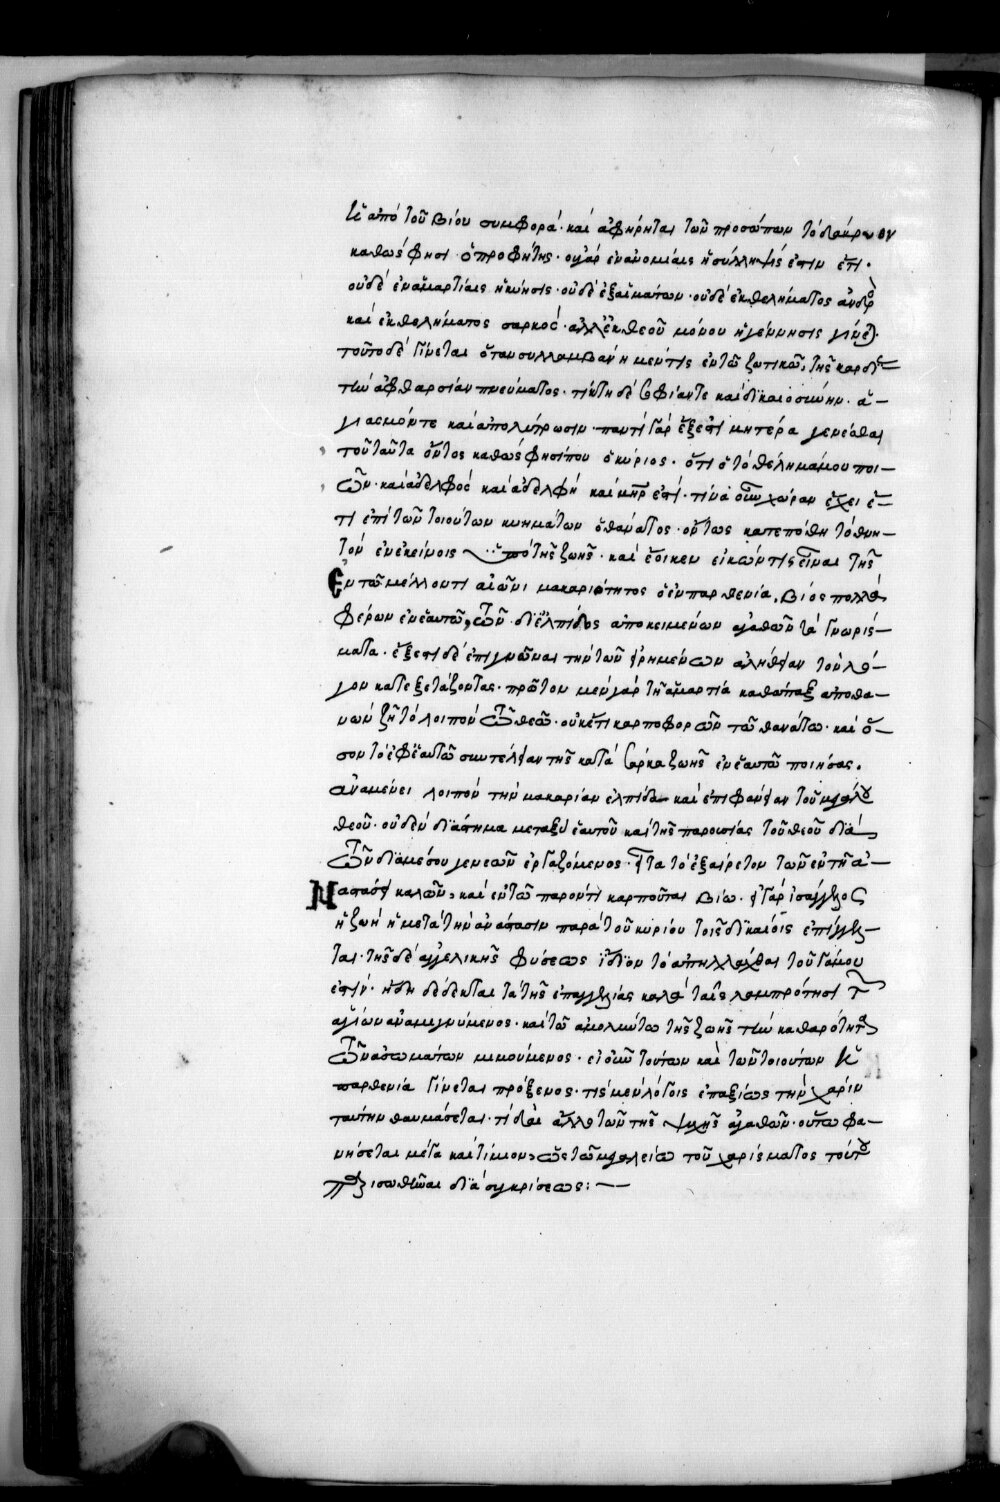 ἡ ἀπὸ τοῦ βίου συμφορά· καὶ ἀφήρηται τῶν προσώπων τὸ δάκρυον
καθώς φησι ὁ προφήτης· οὐ γὰρ ἐν ἀνομίαις ἡ σύλληψίς ἐστιν ἔτι·
οὐδὲ ἐν ἁμαρτίαις ἡ κύησις· οὐδὲ ἐξ αἱμάτων· οὐδὲ ἐκ θελήματος ἀνδρ
καὶ ἐκ θελήματος σαρκός· ἀλλ' ἐκ θεοῦ μόνου ἡ γέννησις γίνεται·
τοῦτο δὲ γίνεται ὅταν συλλαμβάνη μέν τις ἐν τῶ ζωτικῶ τῆς καρδί–
τὴν ἀφθαρσίαν πνεύματος· τίκτη δὲ σοφίαν τε καὶ δικαιοσύνην· ἁ–
γιασμόν τε καὶ ἀπολύτρωσιν· παντὶ γὰρ ἔξεστι μητέρα γενέσθαι
τοῦ ταῦτα ὄντος καθώς φησί που ὁ κύριος· ὅτι ὁ τὸ θέλημά μου ποι–
ῶν· καὶ ἀδελφὸς καὶ ἀδελφὴ καὶ μηρ ἐστί· τίνα οὖν χώραν ἔχει ἔ–
τι ἐπὶ τῶν τοιούτων κυημάτων ὁ θάνατος· ὄντως κατεπόθη τὸ θνη–
τὸν ἐν ἐκείνοις ὑπὸ τῆς ζωῆς· καὶ ἔοικεν εἰκών τις εἶναι τῆς
Ἐν τῶ μέλλοντι αἰῶνι μακαριότητος ὁ ἐν παρθενία βίος πολλὰ
φέρων ἐν ἑαυτῶ, τῶν δι' ἐλπίδος ἀποκειμένων ἀγαθῶν τὰ γνωρίσ–
ματα· ἔξεστι δὲ ἐπιγνῶναι τὴν τῶν εἰρημένων ἀλήθειαν τὸν λό–
γον κατεξετάζοντας· πρῶτον μὲν γὰρ τῆ ἁμαρτία καθάπαξ ἀποθα–
νὼν ζῆ τὸ λοιπὸν τῶ θεῶ· οὐκέτι καρποφορῶν τῶ θανάτω· καὶ ὅ–
σον τὸ ἐφ' ἑαυτῶ συντέλειαν τῆς κατὰ σάρκα ζωῆς ἐν ἑαυτῶ ποιήσας.
ἀναμένει λοιπὸν τὴν μακαρίαν ἐλπίδα καὶ ἐπιφάνειαν τοῦ μεγάλου
θεοῦ· οὐδὲν διάστημα μεταξὺ ἑαυτοῦ καὶ τῆς παρουσίας τοῦ θεοῦ διὰ
τῶν διὰ μέσου γενεῶν ἐργαζόμενος· εἶτα τὸ ἐξαίρετον τῶν ἐν τῆ ἀ–
Ναστάσει καλῶν, καὶ ἐν τῶ παρόντι καρποῦται βίω· εἰ γὰρ ἰσάγγελος
ἡ ζωὴ ἡ μετὰ τὴν ἀνάστασιν παρὰ τοῦ κυρίου τοῖς δικαίοις ἐπήγγελ–
ται· τῆς δὲ ἀγγελικῆς φύσεως ἴδιον τὸ ἀπηλλάχθαι τοῦ γάμου
ἐστίν· ἤδη δέδεκται τὰ τῆς ἐπαγγελίας καλὰ ταῖς λαμπρότησι τῶν
ἁγίων ἀναμιγνύμενος· καὶ τῶ ἀμολύντω τῆς ζωῆς τὴν καθαρότητα
τῶν ἀσωμάτων μιμούμενος· εἰ οὖν τούτων καὶ τῶν τοιούτων ἡ
παρθενία γίνεται πρόξενος· τίς μὲν λόγοις ἐπαξίως τὴν χάριν
ταύτην θαυμάσεται· τί δαὶ ἄλλο τῶν τῆς ψυχῆς ἀγαθῶν· οὕτω φα–
νήσεται μέγα καὶ τίμιον, ὥστε τῶ μεγαλείω τοῦ χαρίσματος τούτου
παρισωθῆναι διὰ συγκρίσεως: –––